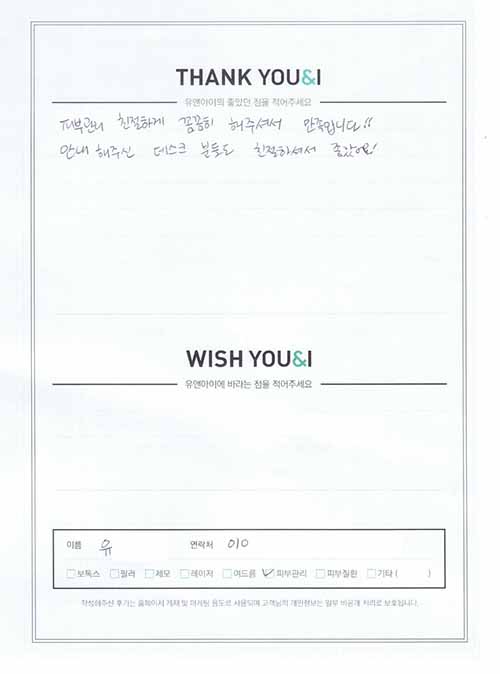 THANK YOU&I
유앤아이의 좋았던 점을 적어주세요
피부관리 친절하게 꼼꼼히 해주셔서 만족입니다!!
안내 해주신 데스크 분들도 친절하셔서 좋았어요!
WISH YOU&I
유앤아이에 바라는 점을 적어주세요
이름 유 연락처 010
보톡스 필러 제모 레이저 여드름 피부관리 피부질환 기타 ( )
작성해주신 후기는 홈페이지 게재 및 마케팅 용도로 사용되며 고객님의 개인정보는 일부 비공개 처리로 보호됩니다.